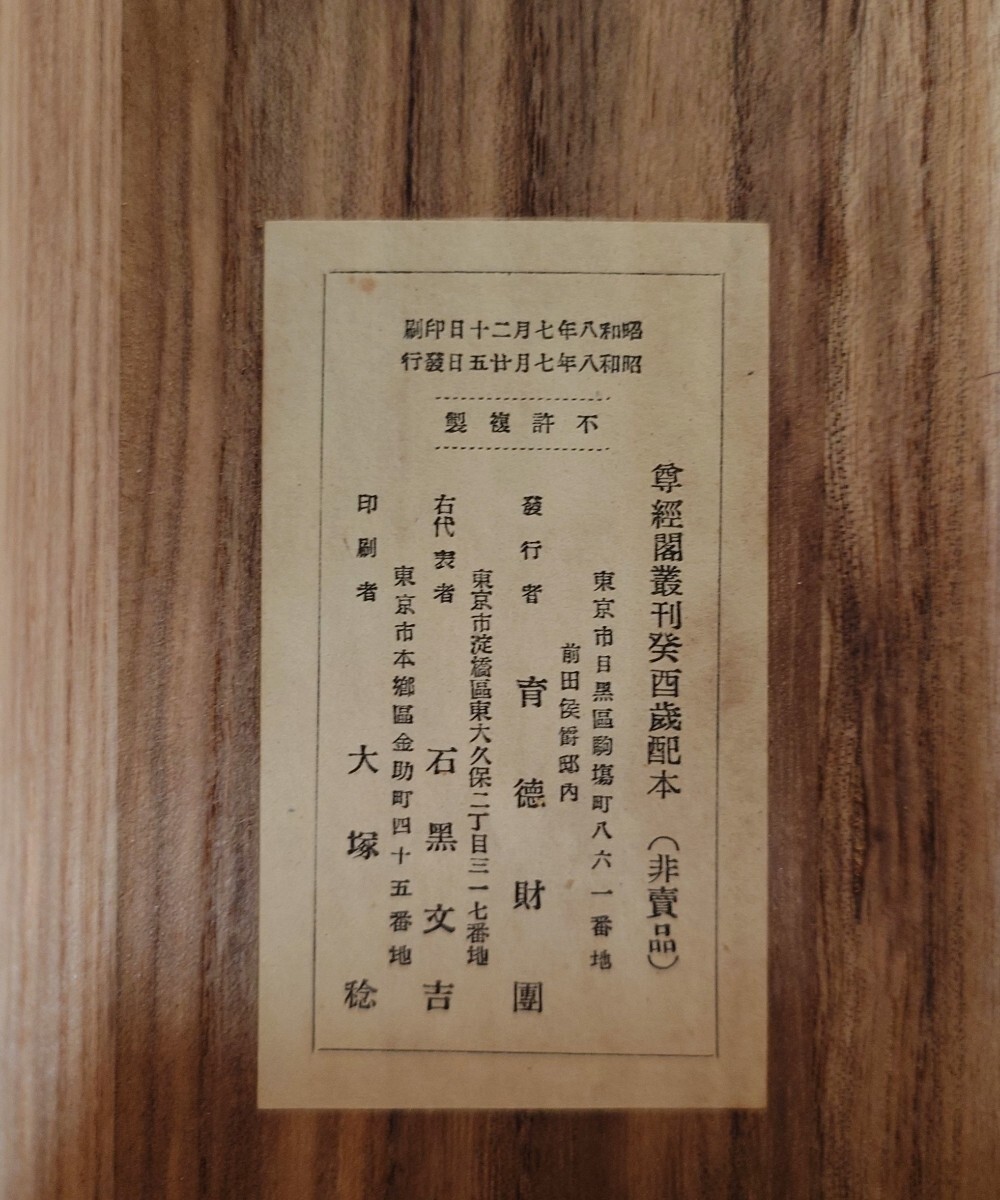 昭和八年七月二十日印刷
昭和八年七月廿五日發行
不許複製
尊經閣叢刊癸酉歲配本 (非賣品)
東京市目黑區駒塲町八六一番地
前田侯爵邸內
發行者 育德財團
東京市淀橋區東大久保二丁目三一七番地
右代表者 石黑文吉
東京市本鄕區金助町四十五番地
印刷者 大塚稔